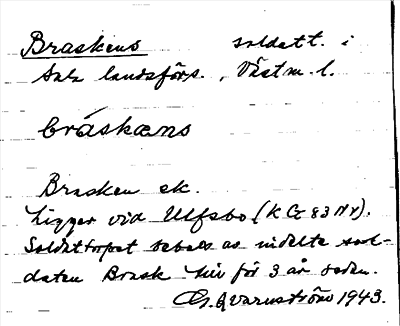 Braskens soldatt. i
Sala landsförs., Västm. l.
bráskæns
Brasken ek.
Ligger vid Ulfsbo (K G 83 Nr).
Soldattorpet bebos av indelte sol-
daten Brask här för 3 år sedan.
G. Qvarnström 1943.